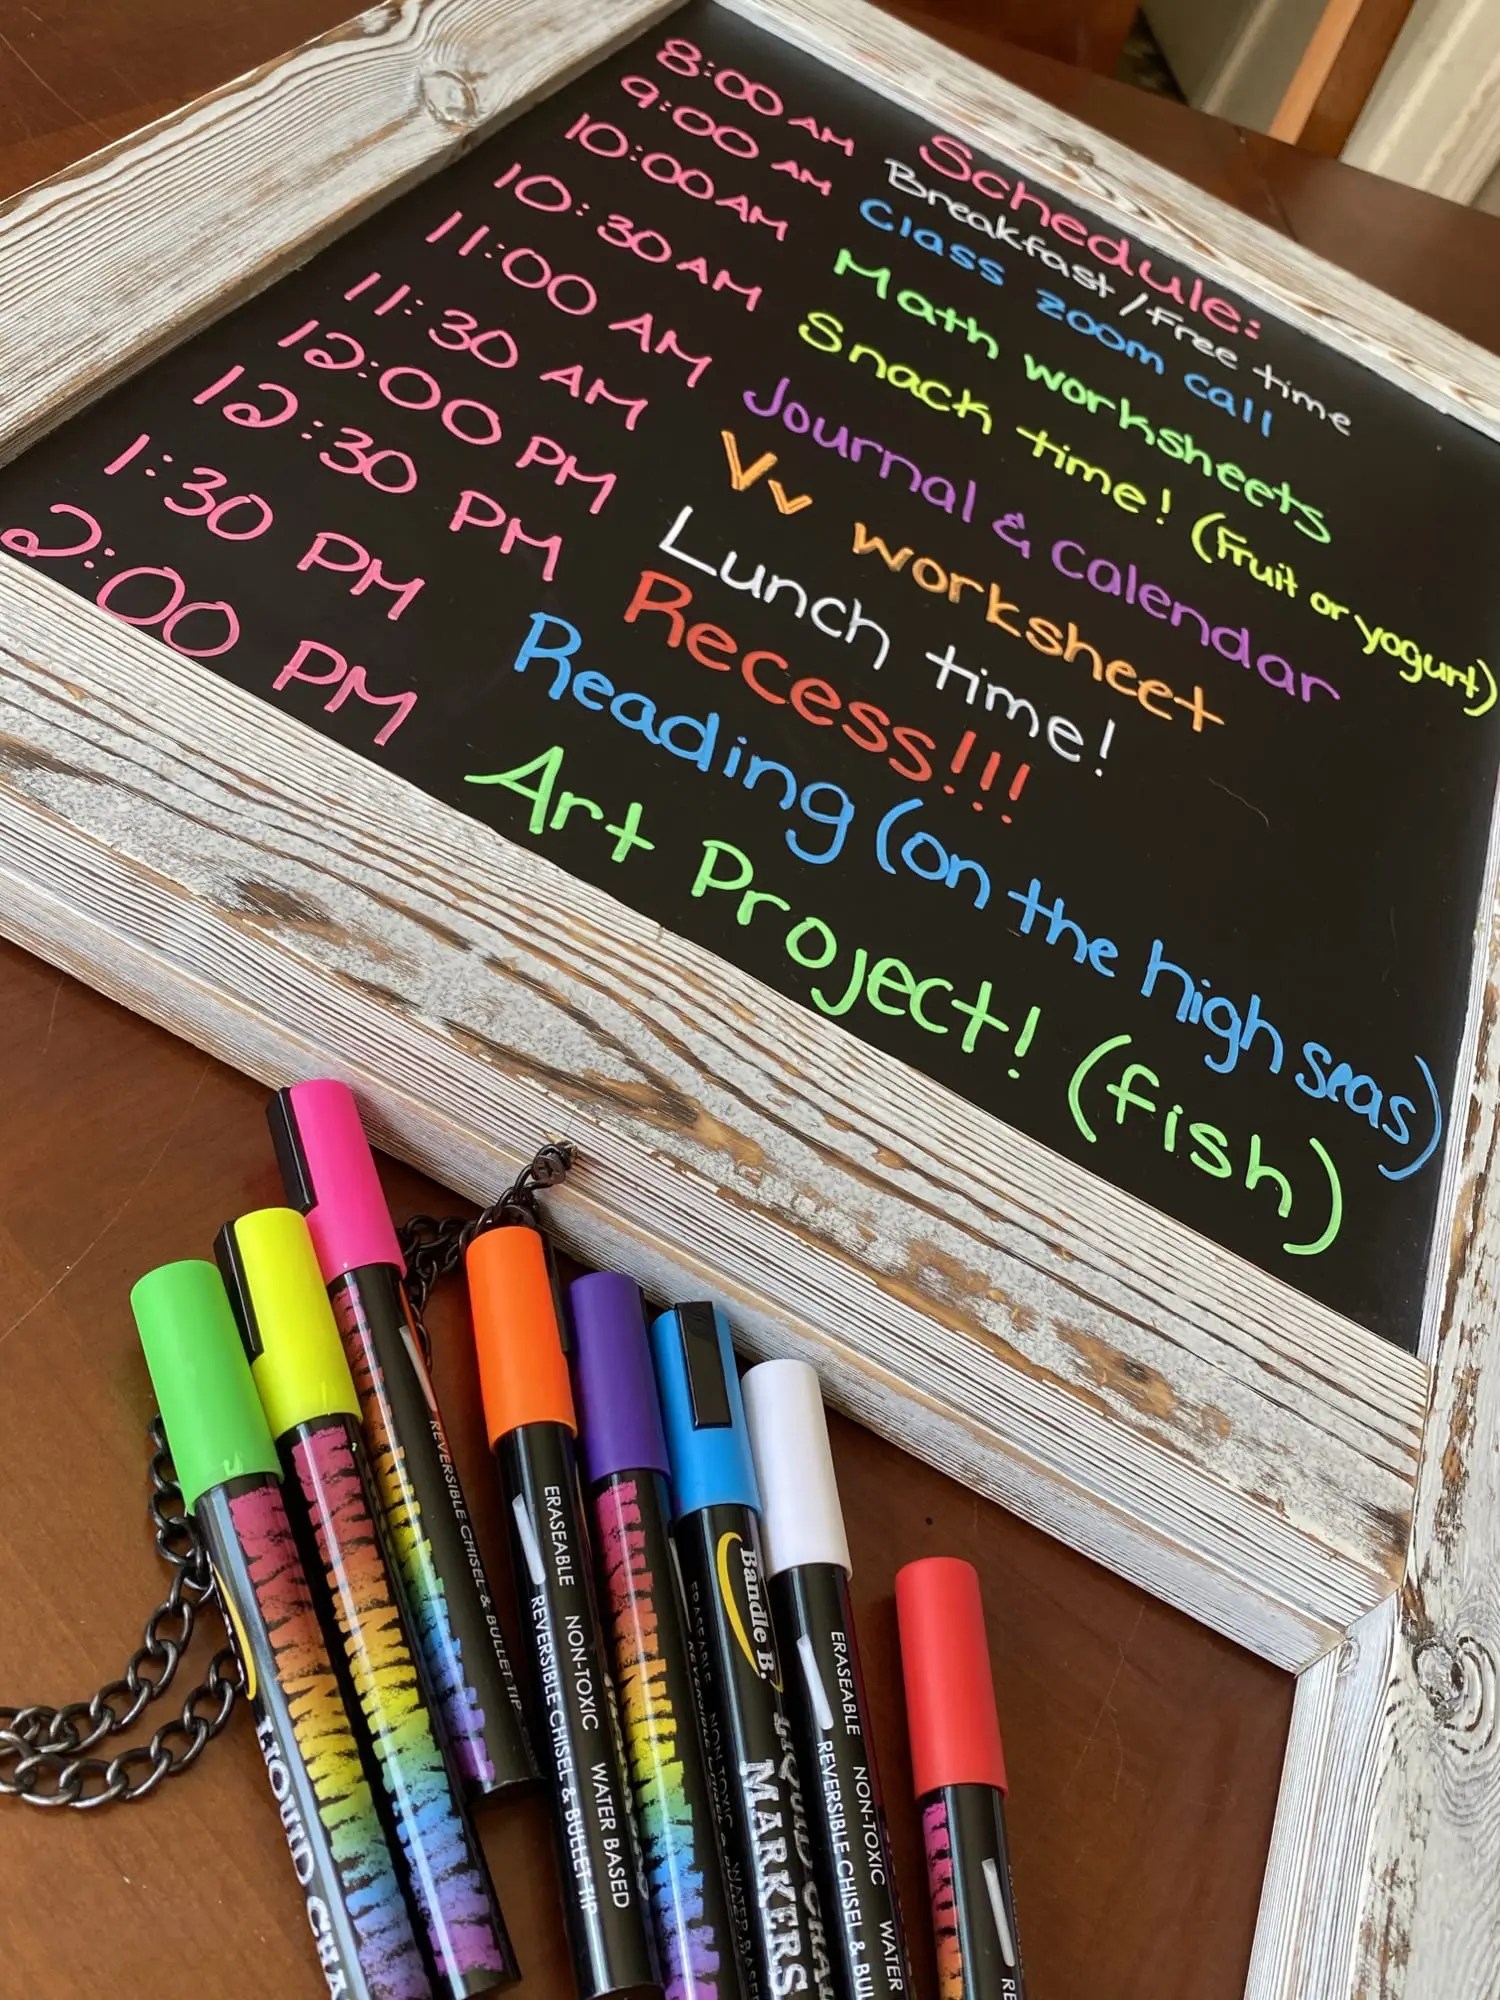 Schedule:
8:00 AM Breakfast/Free time
9:00 AM Class zoom call
10:00AM Math worksheets
10:30AM Snack time! (Fruit or yogurt)
11:00 AM Journal & Calendar
11:30 AM Vv worksheet
12:00 PM Lunch time!
12:30 PM Recess!!!
1:30 PM Reading (on the high seas)
2:00 PM Art Project! (fish)
REVERSIBLE CHISEL & BULLET TIP
ERASEABLE NON-TOXIC WATER BASED
REVERSIBLE CHISEL & BULLET TIP
Bandle B.
MARKERS
ERASEABLE NON-TOXIC WATER
REVERSIBLE CHISEL & BUL